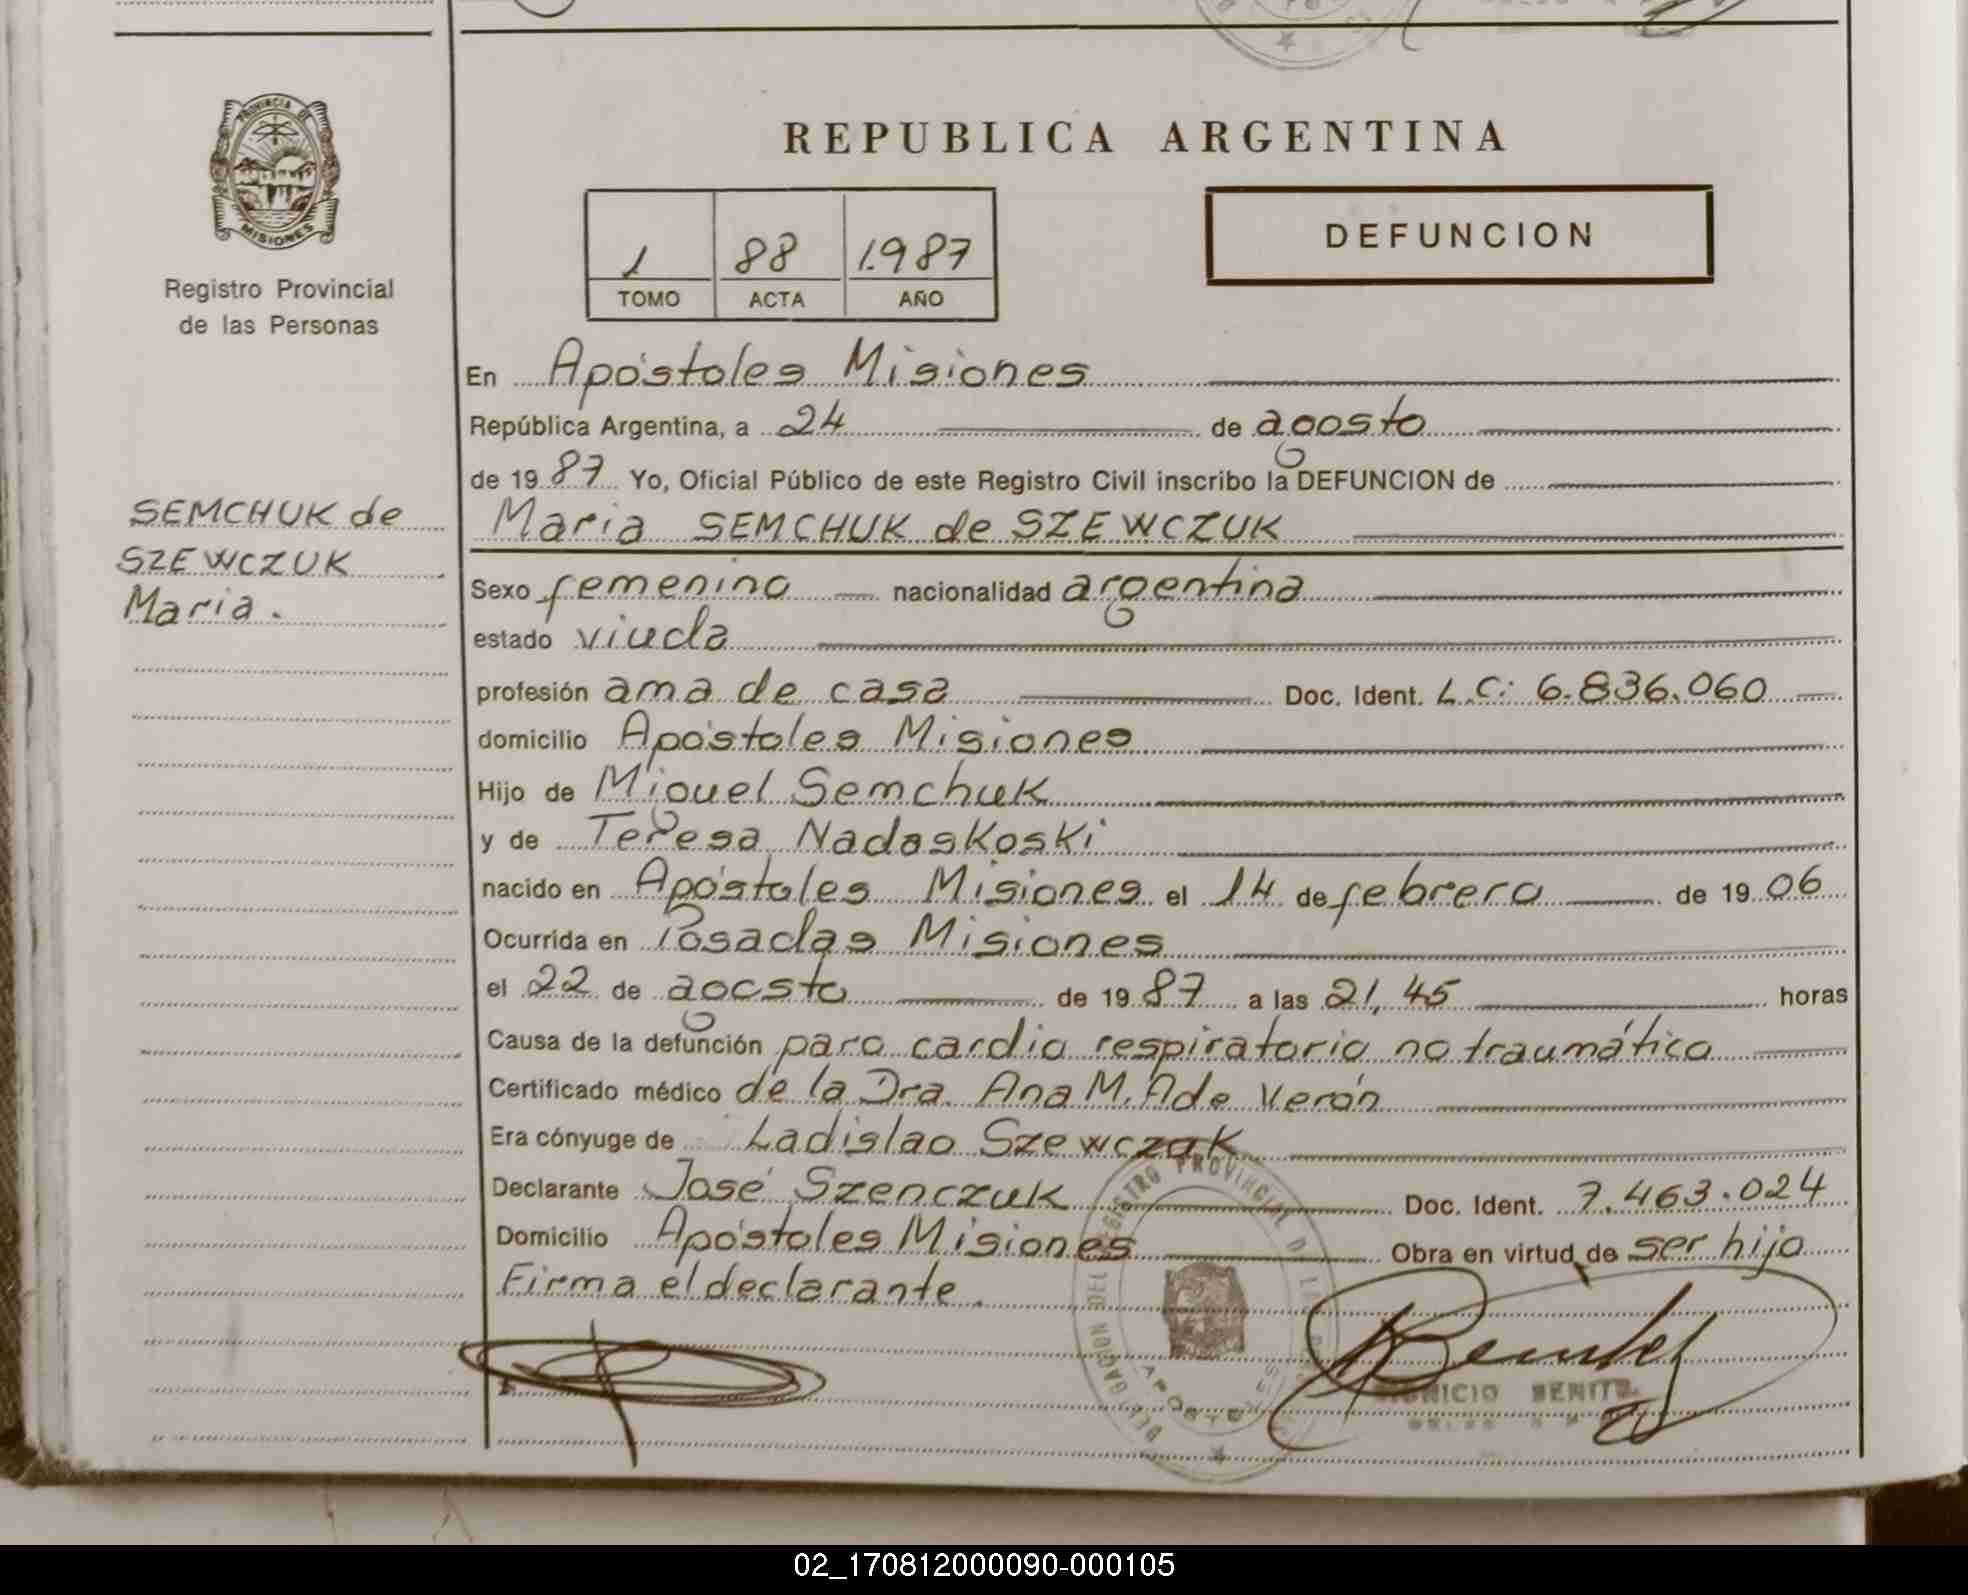 PROVINCIA DE
MISIONES
Registro Provincial
de las Personas
SEMCHUK de
SZEWCZUK
Maria.
REPUBLICA ARGENTINA
1 88 1.987
TOMO ACTA AÑO
DEFUNCION
En Apóstoles Misiones
República Argentina, a 24 de agosto
de 19 87 Yo, Oficial Público de este Registro Civil inscribo la DEFUNCION de
Maria SEMCHUK de SZEWCZUK
Sexo femenino nacionalidad argentina
estado viuda
profesión ama de casa Doc. Ident. L.C: 6.836.060
domicilio Apóstoles Misiones
Hijo de Miguel Semchuk
y de Teresa Nadaskoski
nacido en Apóstoles Misiones el 14 de febrero de 19 06
Ocurrida en Posadas Misiones
el 22 de agosto de 19 87 a las 21,45 horas
Causa de la defunción paro cardio respiratorio no traumático
Certificado médico de la Dra. Ana M. A de Verón
Era cónyuge de Ladislao Szewczak
Declarante José Szenczuk Doc. Ident. 7.463.024
Domicilio Apóstoles Misiones Obra en virtud de ser hijo
Firma el declarante.
02_170812000090-000105